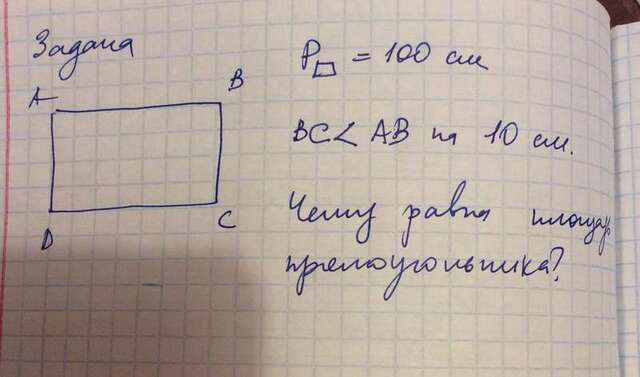 Задача
A
B
D
C
P▭ = 100 см
BC < AB на 10 см.
Чему равна площадь
прямоугольника?